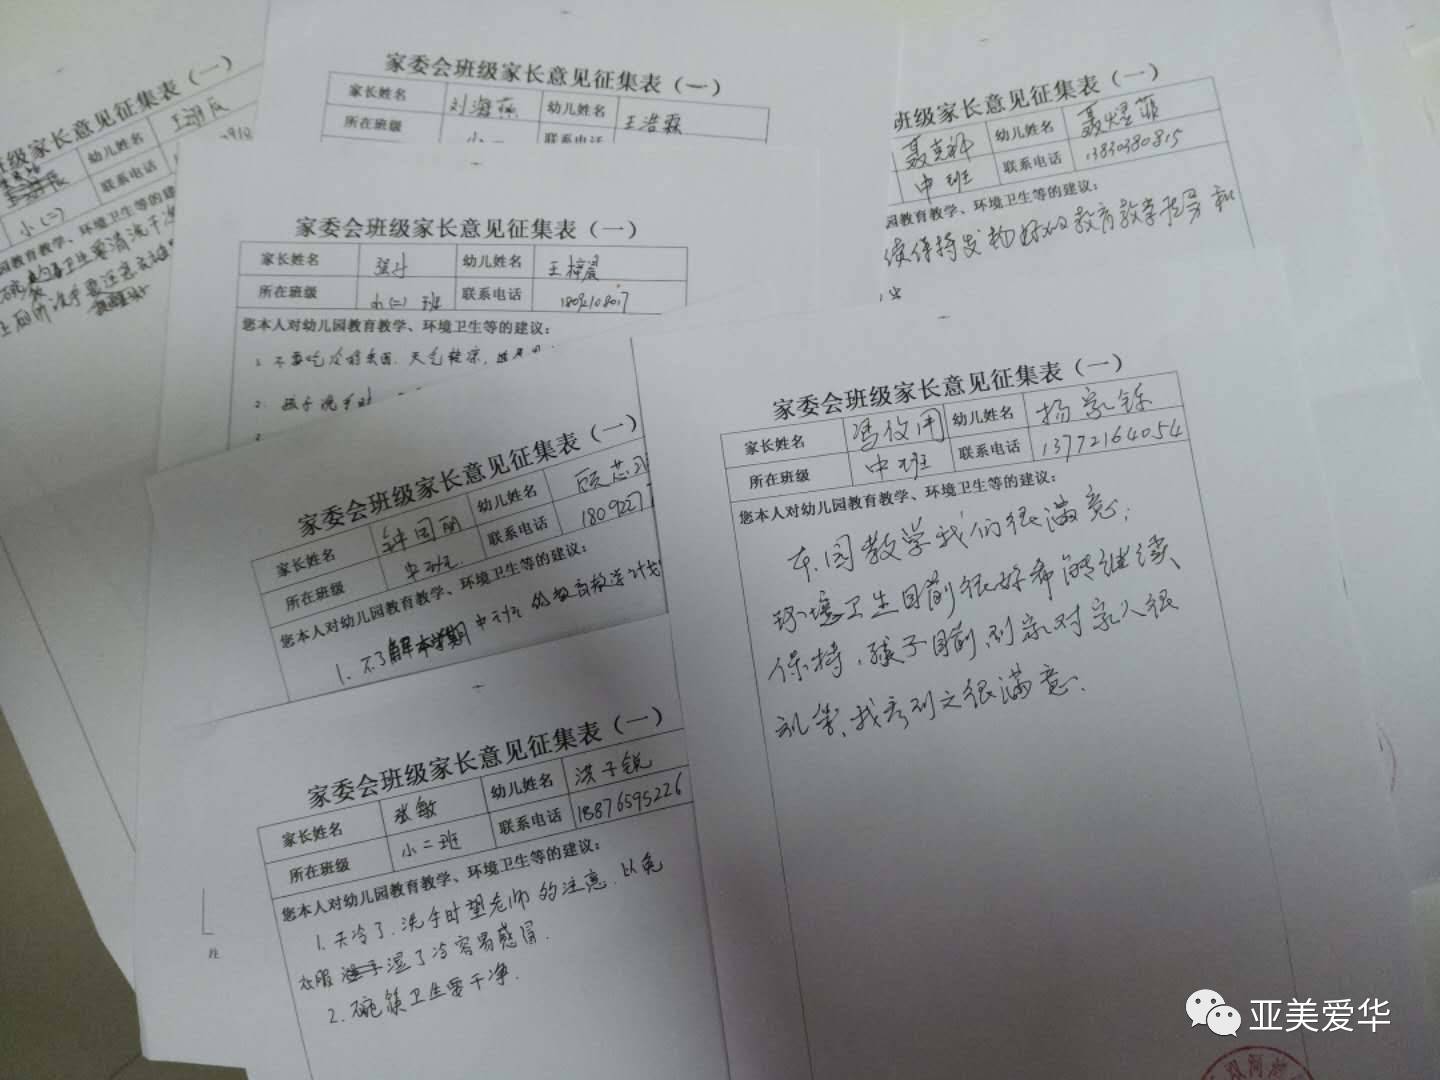 班级家长意见征集表（一）
幼儿姓名
小（二）
联系电话
园教育教学、环境卫生等的建议：
家委会班级家长意见征集表（一）
家长姓名 刘海燕 幼儿姓名 王浩霖
所在班级 小一 联系电话
班级家长意见征集表（一）
聂克科 幼儿姓名 聂煜菲
中班 联系电话 13830380815
园教育教学、环境卫生等的建议：
续保持发扬好的教育教学指导和
家委会班级家长意见征集表（一）
家长姓名 幼儿姓名 王梓晨
所在班级 小（二）班 联系电话
您本人对幼儿园教育教学、环境卫生等的建议：
1. 不要吃冷的东西. 天气转凉,
2. 孩子洗手时
家委会班级家长意见征集表（一）
家长姓名 钟国丽 幼儿姓名
所在班级 中班 联系电话 1809227
您本人对幼儿园教育教学、环境卫生等的建议：
1. 不了解本学期中班的教育教学计划
家委会班级家长意见征集表（一）
家长姓名 张敏 幼儿姓名 洪子锐
所在班级 小二班 联系电话 18876595226
您本人对幼儿园教育教学、环境卫生等的建议：
1. 天冷了. 洗手时望老师的注意. 以免
衣服湿了冷容易感冒.
2. 碗筷卫生要干净.
家委会班级家长意见征集表（一）
家长姓名 幼儿姓名 杨家铄
所在班级 中班 联系电话 13772164054
您本人对幼儿园教育教学、环境卫生等的建议：
本园教学我们很满意;
环境卫生目前很好希能继续
保持, 孩子目前到家对家人很
礼貌, 我看到之很满意.
亚美爱华